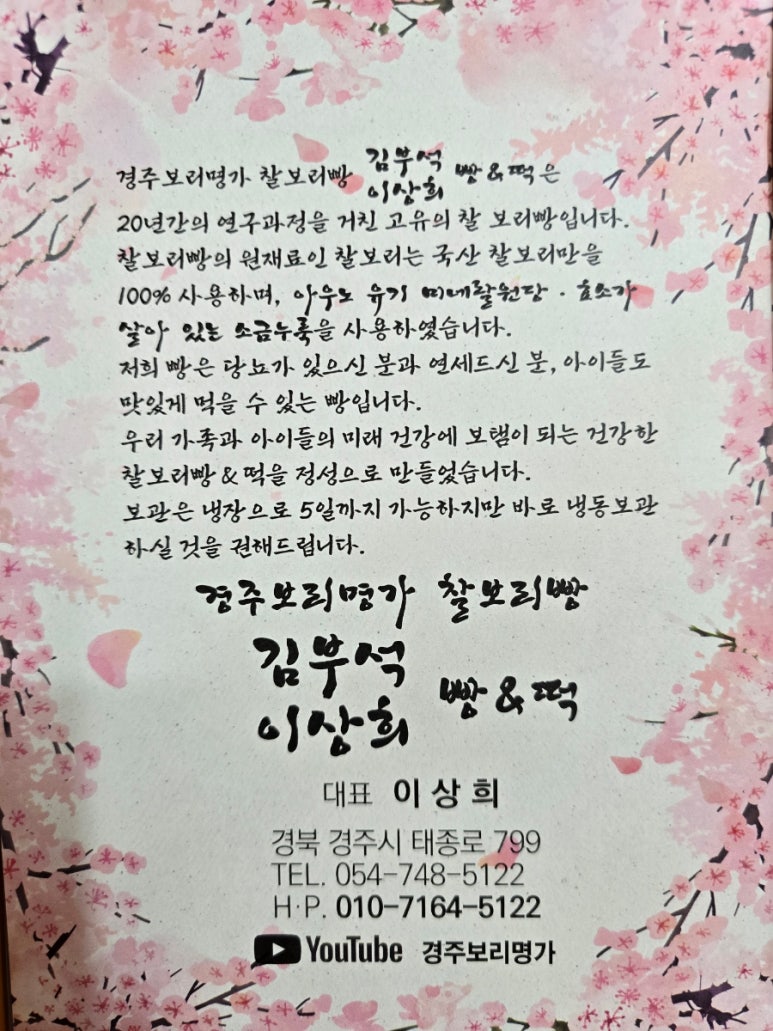 경주보리명가 찰보리빵 김부석 이상희 빵&떡은
20년간의 연구과정을 거친 고유의 찰 보리빵입니다.
찰보리빵의 원재료인 찰보리는 국산 찰보리만을
100% 사용하며, 아우노 유기 미네랄원당 · 효소가
살아 있는 소금누룩을 사용하였습니다.
저희 빵은 당뇨가 있으신 분과 연세드신 분, 아이들도
맛있게 먹을 수 있는 빵입니다.
우리 가족과 아이들의 미래 건강에 보탬이 되는 건강한
찰보리빵&떡을 정성으로 만들었습니다.
보관은 냉장으로 5일까지 가능하지만 바로 냉동보관
하실 것을 권해드립니다.
경주보리명가 찰보리빵
김부석
이상희 빵&떡
대표 이상희
경북 경주시 태종로 799
TEL. 054-748-5122
H·P. 010-7164-5122
YouTube 경주보리명가